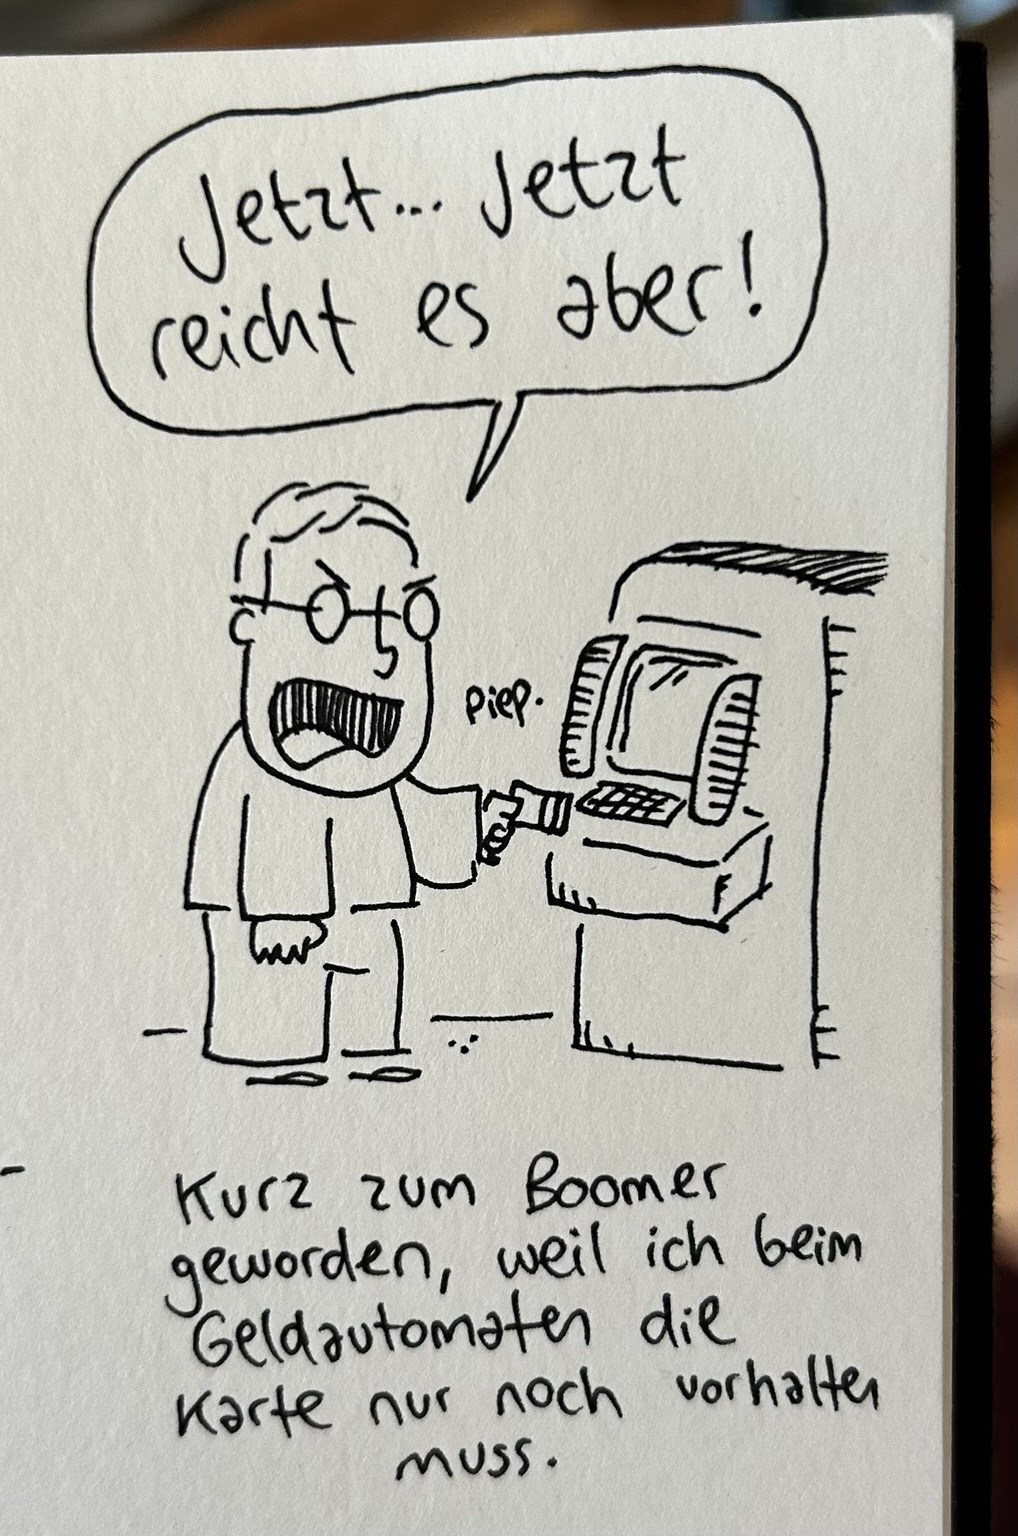 Jetzt... Jetzt
reicht es aber!
Piep.
Kurz zum Boomer
geworden, weil ich beim
Geldautomaten die
Karte nur noch vorhalten
muss.